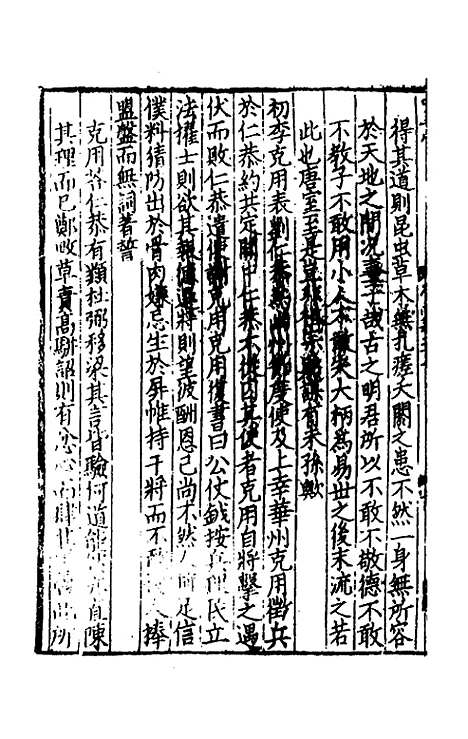 得其道則昆虫草木無札瘥夭閼之患不然一身無所容
於天地之間況妻子哉古之明君所以不敢不敬德不敢
不教子不敢用小人不敢失大柄為易世之後末流之若
此也唐室至是豈非謀有未孫歟
初李克用表劉仁恭為幽州節度使及上幸華州克用徵兵
於仁恭約共定關中仁恭不從因其使者克用自將擊之遇
伏而敗仁恭遺使謝克用克用復書曰公仗鉞控兵理民立
法擢士則欲其報德選將則望彼酬恩己尚不然人何足信
僕料猜防出於骨肉嫌忌生於屏帷持干將而不敢授人捧
盟盤而無詞著誓
克用荅仁恭有類杜弼移梁其言皆驗何道能自陳
其理而已鄭畋草責高駢詔則有忿心而肆出所